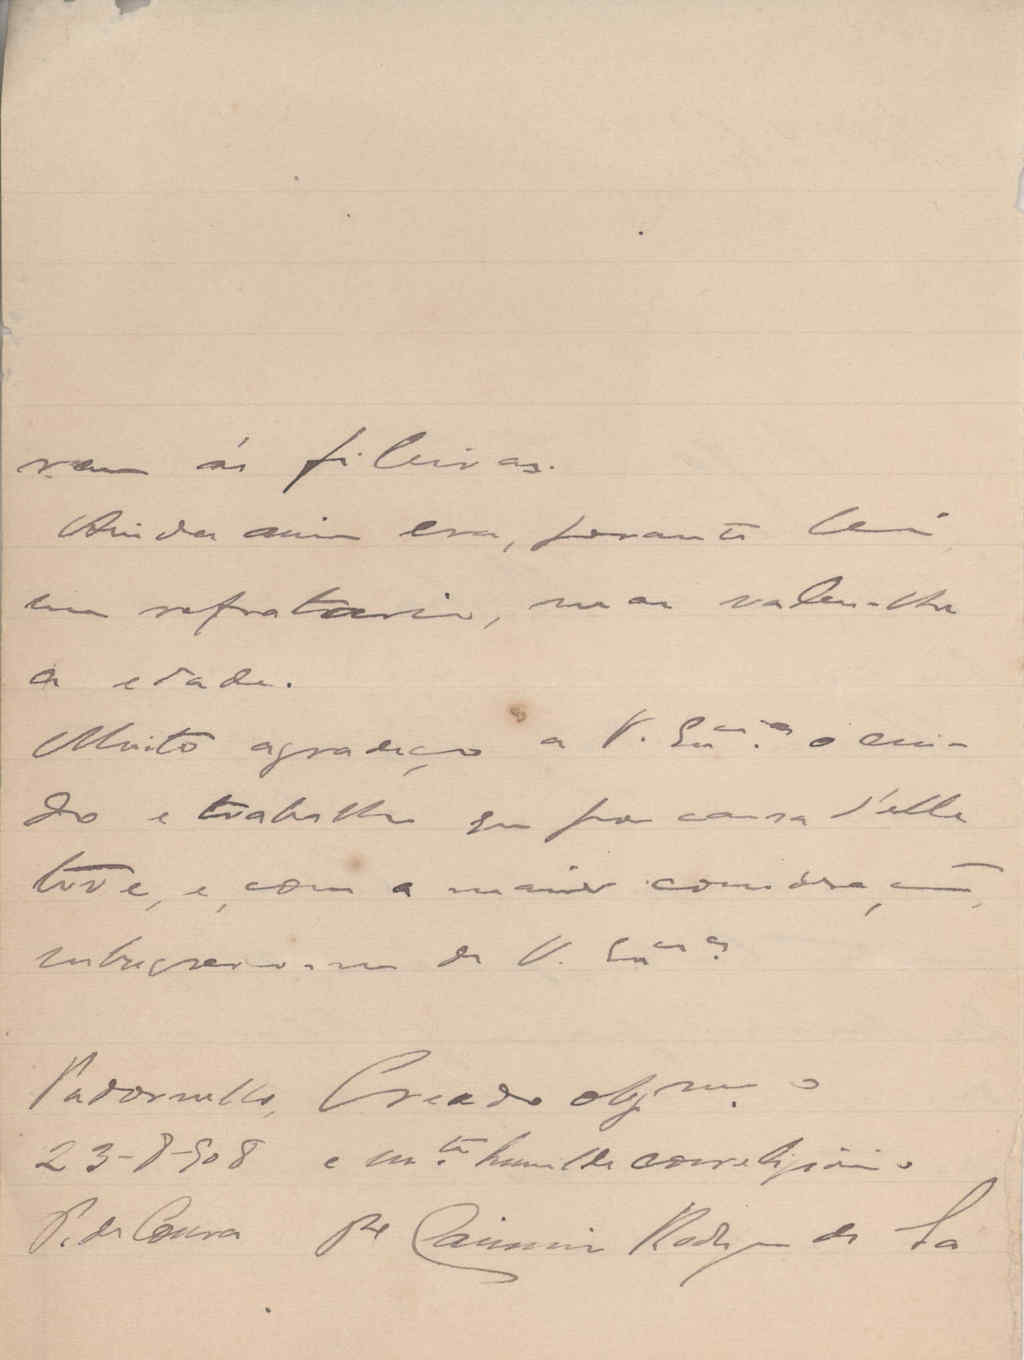 ram ás fileiras.
Ainda assim era, perante lei
um refratario, mas valeu-lhe
a edade.
Muito agradeço a V. Ex.cia o cui-
do e trabalho que por causa d'elle
teve, e, com a maior consideração,
subscrevo-me de V. Ex.cia
Padornello, Creado obg.mo
23-8-908 e m.to humilde correligionario
P. de Coura P.e Casimiro Rodrigues de Sá